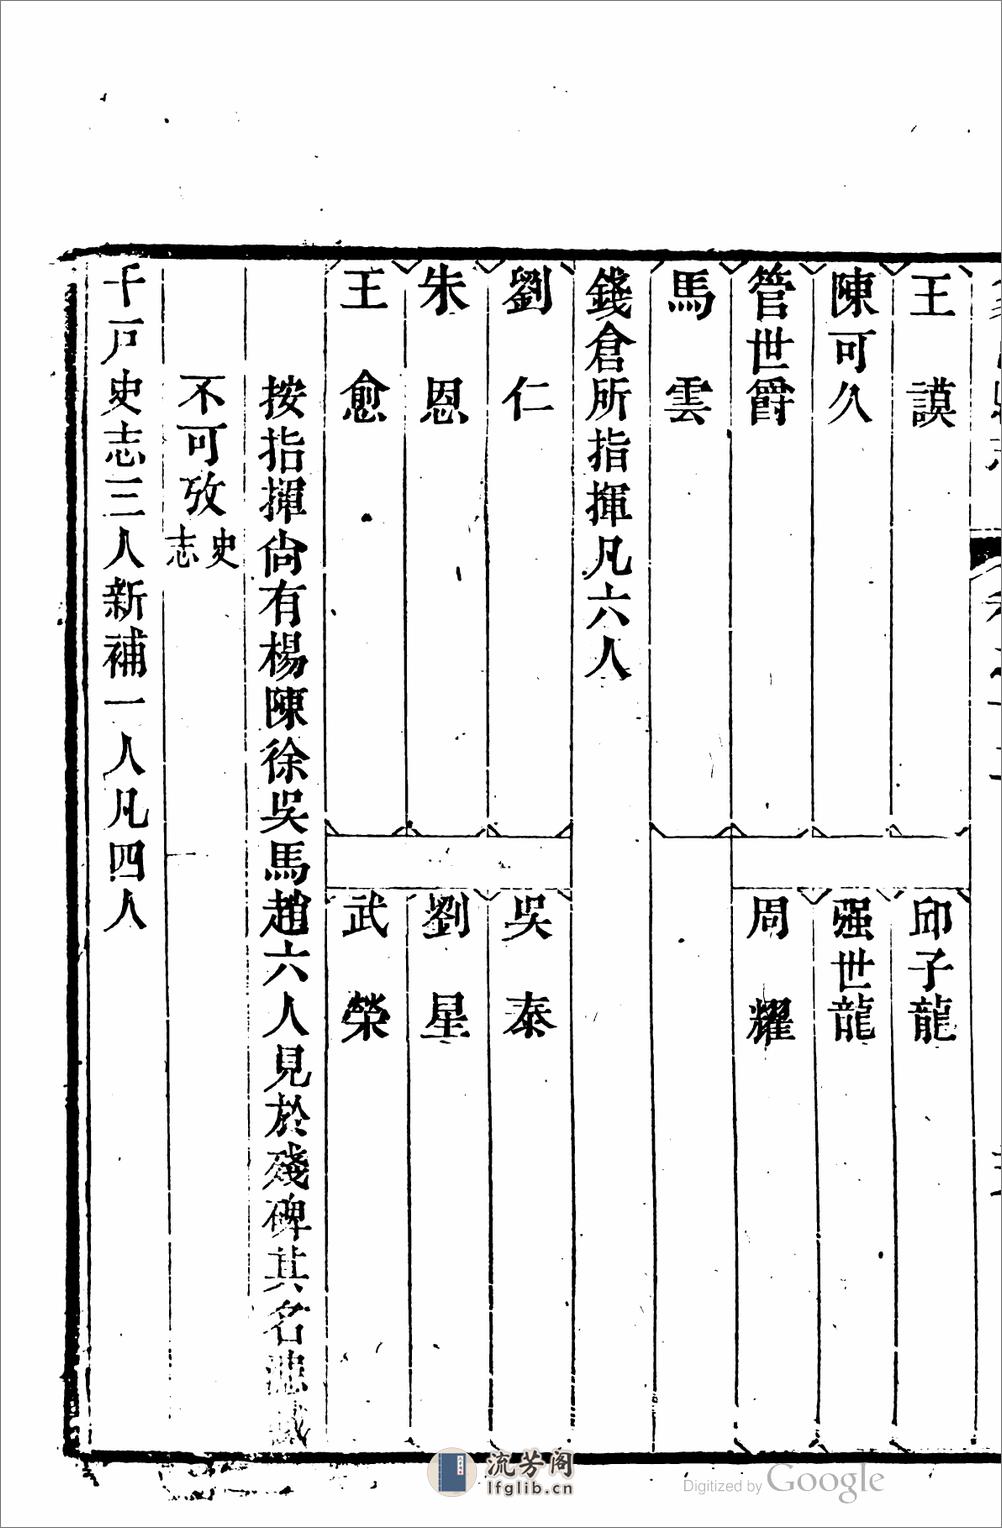 王謨　邱子龍
陳可久　强世龍
管世爵　周耀
馬雲
錢倉所指揮凡六人
劉仁　吳泰
朱恩　劉星
王愈　武榮
按指揮尙有楊陳徐吳馬趙六人見於殘碑其名
不可攷史志
千戸史志三人新補一人凡四人
流芳阁
lfglib.cn
Digitized by Google